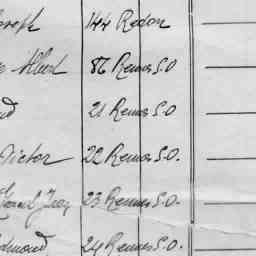 Joseph 144 Redon
Albert 86 Rennes S.O
21 Rennes S.O
Victor 22 Rennes S.O.
23 Rennes S.O
Edmond 24 Rennes S.O.